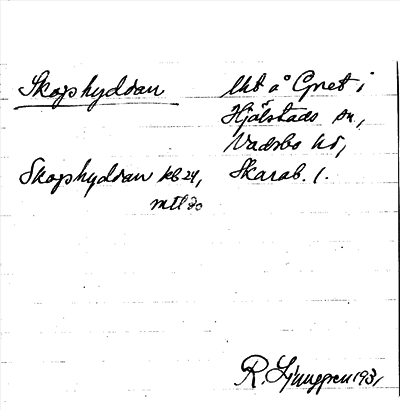 Skogshyddan
Ukt å Gret i
Hjälstads sn,
Vadsbo hd,
Skarab. l.
Skogshyddan kb 24,
mtl do
R. Ljunggren 1931